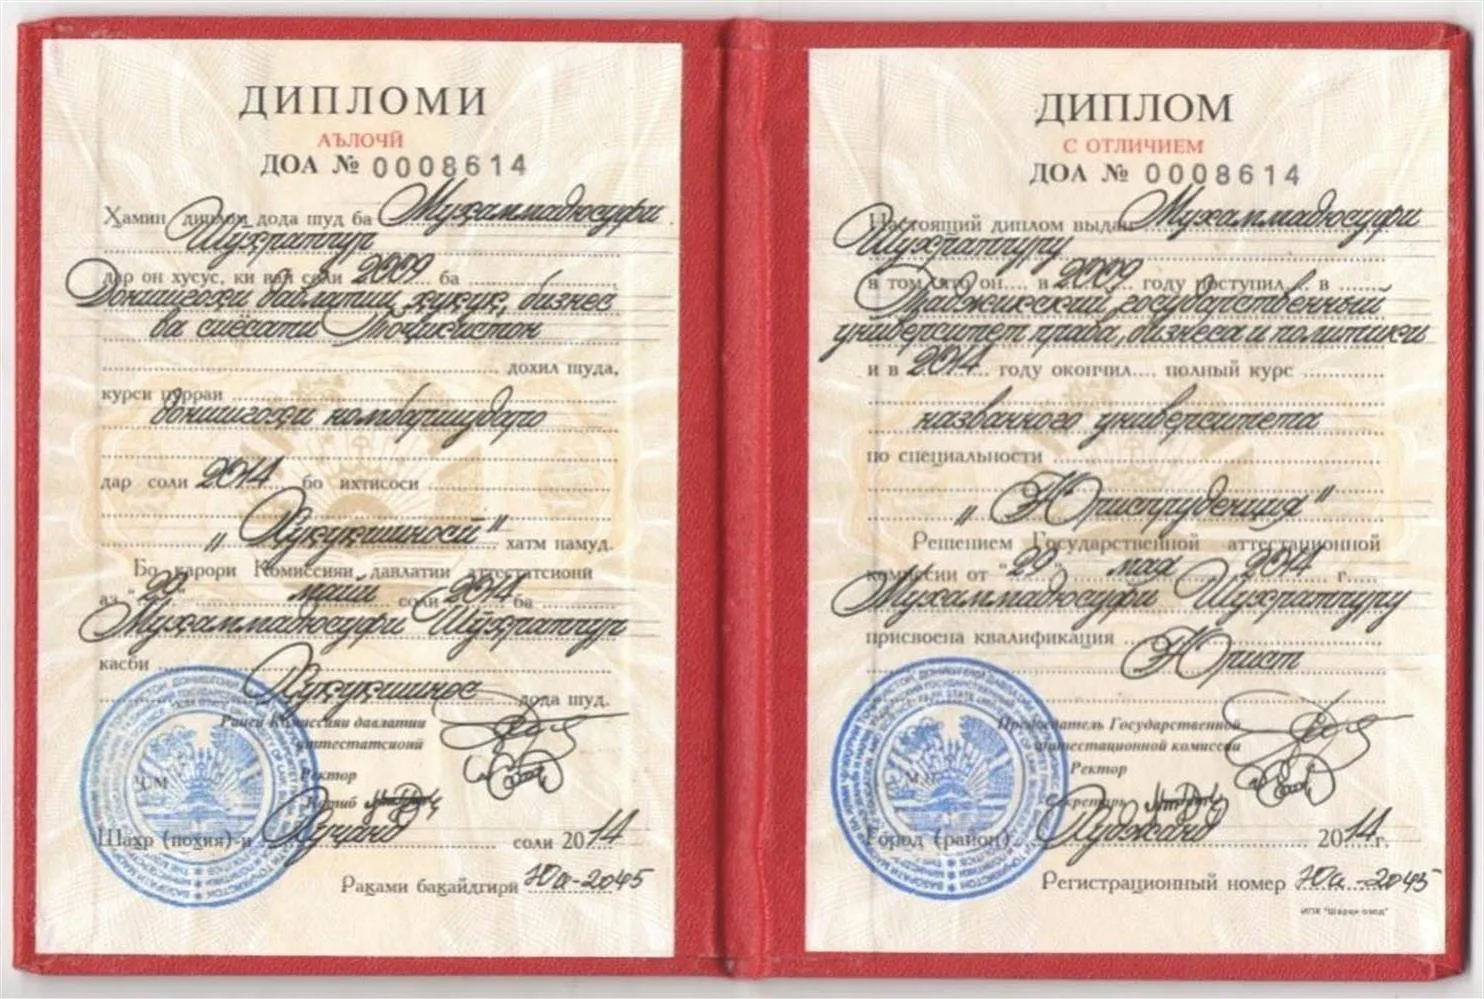 ДИПЛОМИ
АЪЛОЧӢ
ДОА № 0008614
Ҳамин диплом дода шуд ба Муҳаммадюсуфи
Шӯҳратпур
дар он хусус, ки вай соли 2009 ба
Донишгоҳи давлатии ҳуқуқ, бизнес
ва сиёсати Тоҷикистон
дохил шуда,
курси пурраи
донишгоҳи номбаршударо
дар соли 2014 бо ихтисоси
„Ҳуқуқшиносӣ" хатм намуд.
Бо қарори Комиссияи давлатии аттестатсионӣ
аз "29" майи соли 2014 ба
Муҳаммадюсуфи Шӯҳратпур
касби
Ҳуқуқшинос дода шуд.
Раиси Комиссияи давлатии
аттестатсионӣ
Ректор
Котиб
Шаҳр (ноҳия)-и Хуҷанд соли 2014
Рақами бақайдгирӣ Юа-2045
ДИПЛОМ
С ОТЛИЧИЕМ
ДОА № 0008614
Настоящий диплом выдан Мухаммадюсуфи
Шухратпуру
в том, что он.... в 2009 году поступил.... в
Таджикский государственный
университет права, бизнеса и политики
и в 2014 году окончил.... полный курс
названного университета
по специальности
„Юриспруденция"
Решением Государственной аттестационной
комиссии от "29" мая 2014 г.
Мухаммадюсуфи Шухратпуру
присвоена квалификация
Юрист
Председатель Государственной
аттестационной комиссии
Ректор
Секретарь
М.П.
Город (район) Худжанд 2014 г.
Регистрационный номер Юа-2045
ИПК "Шарки озод"